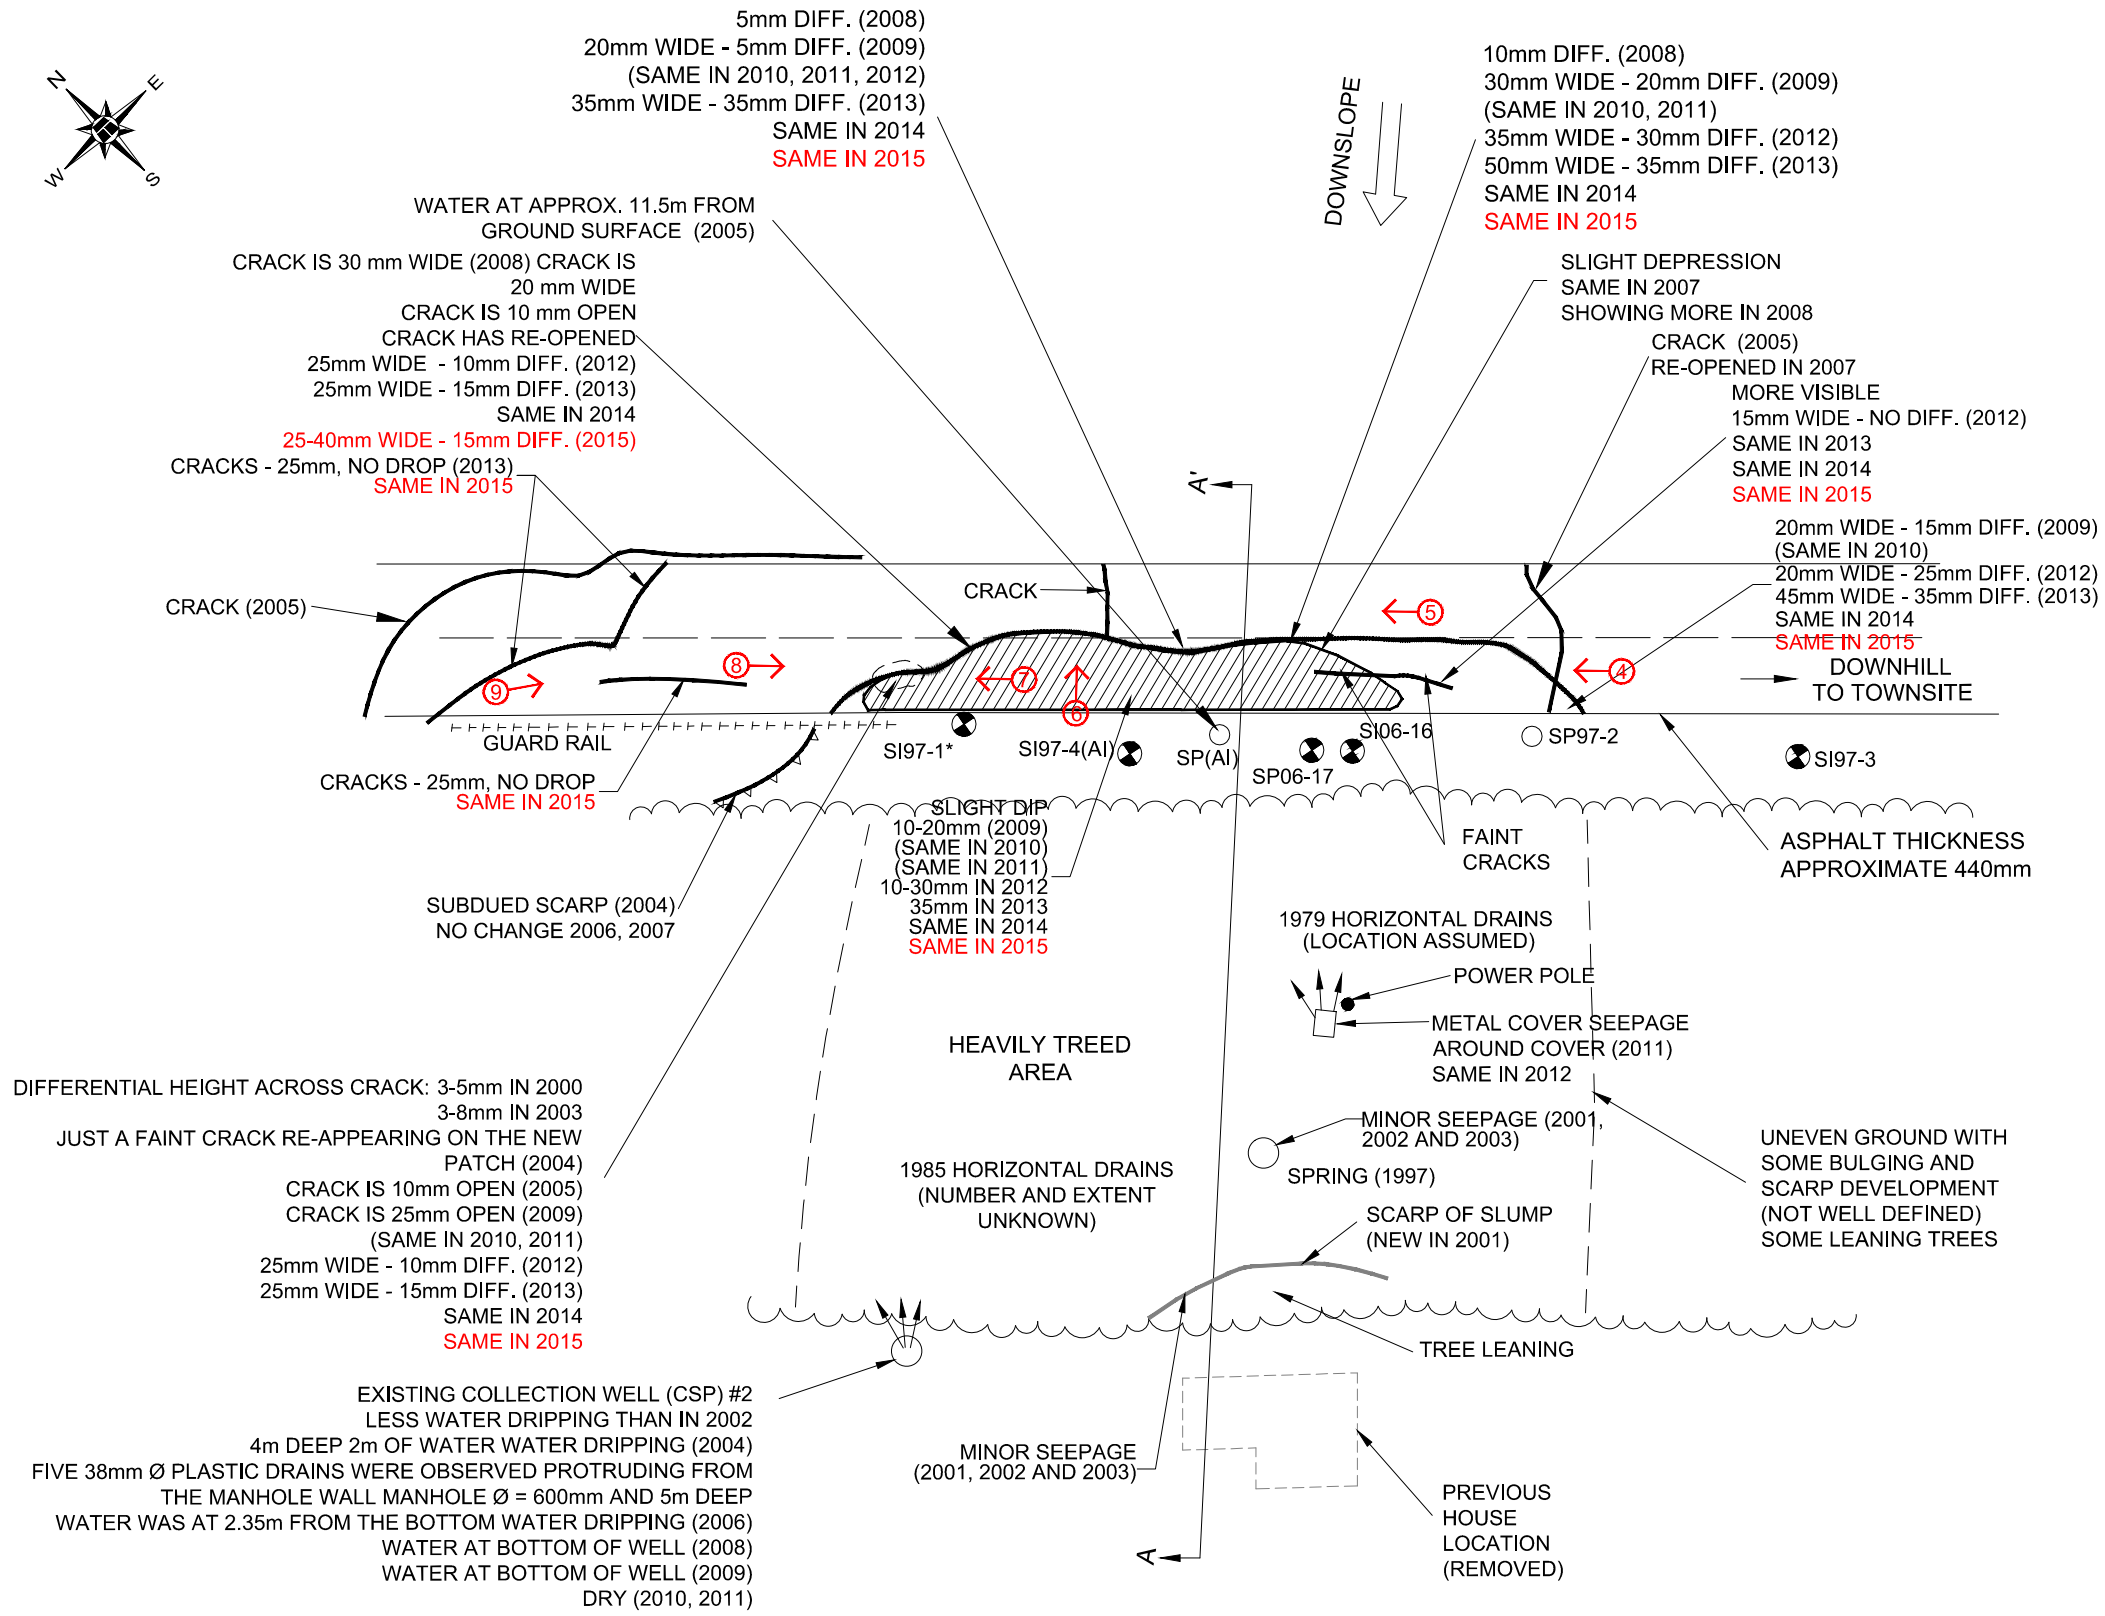 N
E
W
S
5mm DIFF. (2008)
20mm WIDE - 5mm DIFF. (2009)
(SAME IN 2010, 2011, 2012)
35mm WIDE - 35mm DIFF. (2013)
SAME IN 2014
SAME IN 2015
DOWNSLOPE
10mm DIFF. (2008)
30mm WIDE - 20mm DIFF. (2009)
(SAME IN 2010, 2011)
35mm WIDE - 30mm DIFF. (2012)
50mm WIDE - 35mm DIFF. (2013)
SAME IN 2014
SAME IN 2015
WATER AT APPROX. 11.5m FROM
GROUND SURFACE (2005)
CRACK IS 30 mm WIDE (2008) CRACK IS
20 mm WIDE
CRACK IS 10 mm OPEN
CRACK HAS RE-OPENED
25mm WIDE - 10mm DIFF. (2012)
25mm WIDE - 15mm DIFF. (2013)
SAME IN 2014
25-40mm WIDE - 15mm DIFF. (2015)
CRACKS - 25mm, NO DROP (2013)
SAME IN 2015
SLIGHT DEPRESSION
SAME IN 2007
SHOWING MORE IN 2008
CRACK (2005)
RE-OPENED IN 2007
MORE VISIBLE
15mm WIDE - NO DIFF. (2012)
SAME IN 2013
SAME IN 2014
SAME IN 2015
20mm WIDE - 15mm DIFF. (2009)
(SAME IN 2010)
20mm WIDE - 25mm DIFF. (2012)
45mm WIDE - 35mm DIFF. (2013)
SAME IN 2014
SAME IN 2015
A'
CRACK (2005)
CRACK
5
8
9
7
6
4
DOWNHILL
TO TOWNSITE
GUARD RAIL
SI97-1*
SI97-4(AI)
SP(AI)
SP06-17
SI06-16
SP97-2
SI97-3
CRACKS - 25mm, NO DROP
SAME IN 2015
SLIGHT DIP
10-20mm (2009)
(SAME IN 2010)
(SAME IN 2011)
10-30mm IN 2012
35mm IN 2013
SAME IN 2014
SAME IN 2015
FAINT
CRACKS
ASPHALT THICKNESS
APPROXIMATE 440mm
SUBDUED SCARP (2004)
NO CHANGE 2006, 2007
1979 HORIZONTAL DRAINS
(LOCATION ASSUMED)
POWER POLE
METAL COVER SEEPAGE
AROUND COVER (2011)
SAME IN 2012
HEAVILY TREED
AREA
DIFFERENTIAL HEIGHT ACROSS CRACK: 3-5mm IN 2000
3-8mm IN 2003
JUST A FAINT CRACK RE-APPEARING ON THE NEW
PATCH (2004)
CRACK IS 10mm OPEN (2005)
CRACK IS 25mm OPEN (2009)
(SAME IN 2010, 2011)
25mm WIDE - 10mm DIFF. (2012)
25mm WIDE - 15mm DIFF. (2013)
SAME IN 2014
SAME IN 2015
MINOR SEEPAGE (2001,
2002 AND 2003)
SPRING (1997)
1985 HORIZONTAL DRAINS
(NUMBER AND EXTENT
UNKNOWN)
SCARP OF SLUMP
(NEW IN 2001)
UNEVEN GROUND WITH
SOME BULGING AND
SCARP DEVELOPMENT
(NOT WELL DEFINED)
SOME LEANING TREES
TREE LEANING
EXISTING COLLECTION WELL (CSP) #2
LESS WATER DRIPPING THAN IN 2002
4m DEEP 2m OF WATER WATER DRIPPING (2004)
FIVE 38mm Ø PLASTIC DRAINS WERE OBSERVED PROTRUDING FROM
THE MANHOLE WALL MANHOLE Ø = 600mm AND 5m DEEP
WATER WAS AT 2.35m FROM THE BOTTOM WATER DRIPPING (2006)
WATER AT BOTTOM OF WELL (2008)
WATER AT BOTTOM OF WELL (2009)
DRY (2010, 2011)
MINOR SEEPAGE
(2001, 2002 AND 2003)
A
PREVIOUS
HOUSE
LOCATION
(REMOVED)